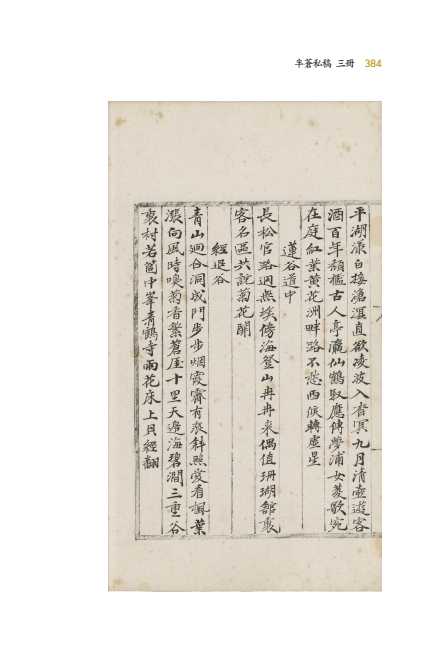 半蒼私稿 三冊 384
平湖漾白接滄溟直欲凌波入杳冥九月清壺遊客
酒百年頹檻古人亭瀛仙鶴馭應傳夢浦女菱歌宛
在庭紅葉黃花洲畔路不愁西候轉虛星
蓮谷道中
長松官路迥無埃傍海登山冉冉來偶值珊瑚都裏
客名區共說菊花開
經遐谷
青山迴合洞成門步步烟霞霽有痕斜照愛看楓葉
漲向風時嗅菊香繁蒼崖十里天邊海碧澗三重谷
裏村若箇中峯靑鶴寺雨花床上貝經翻